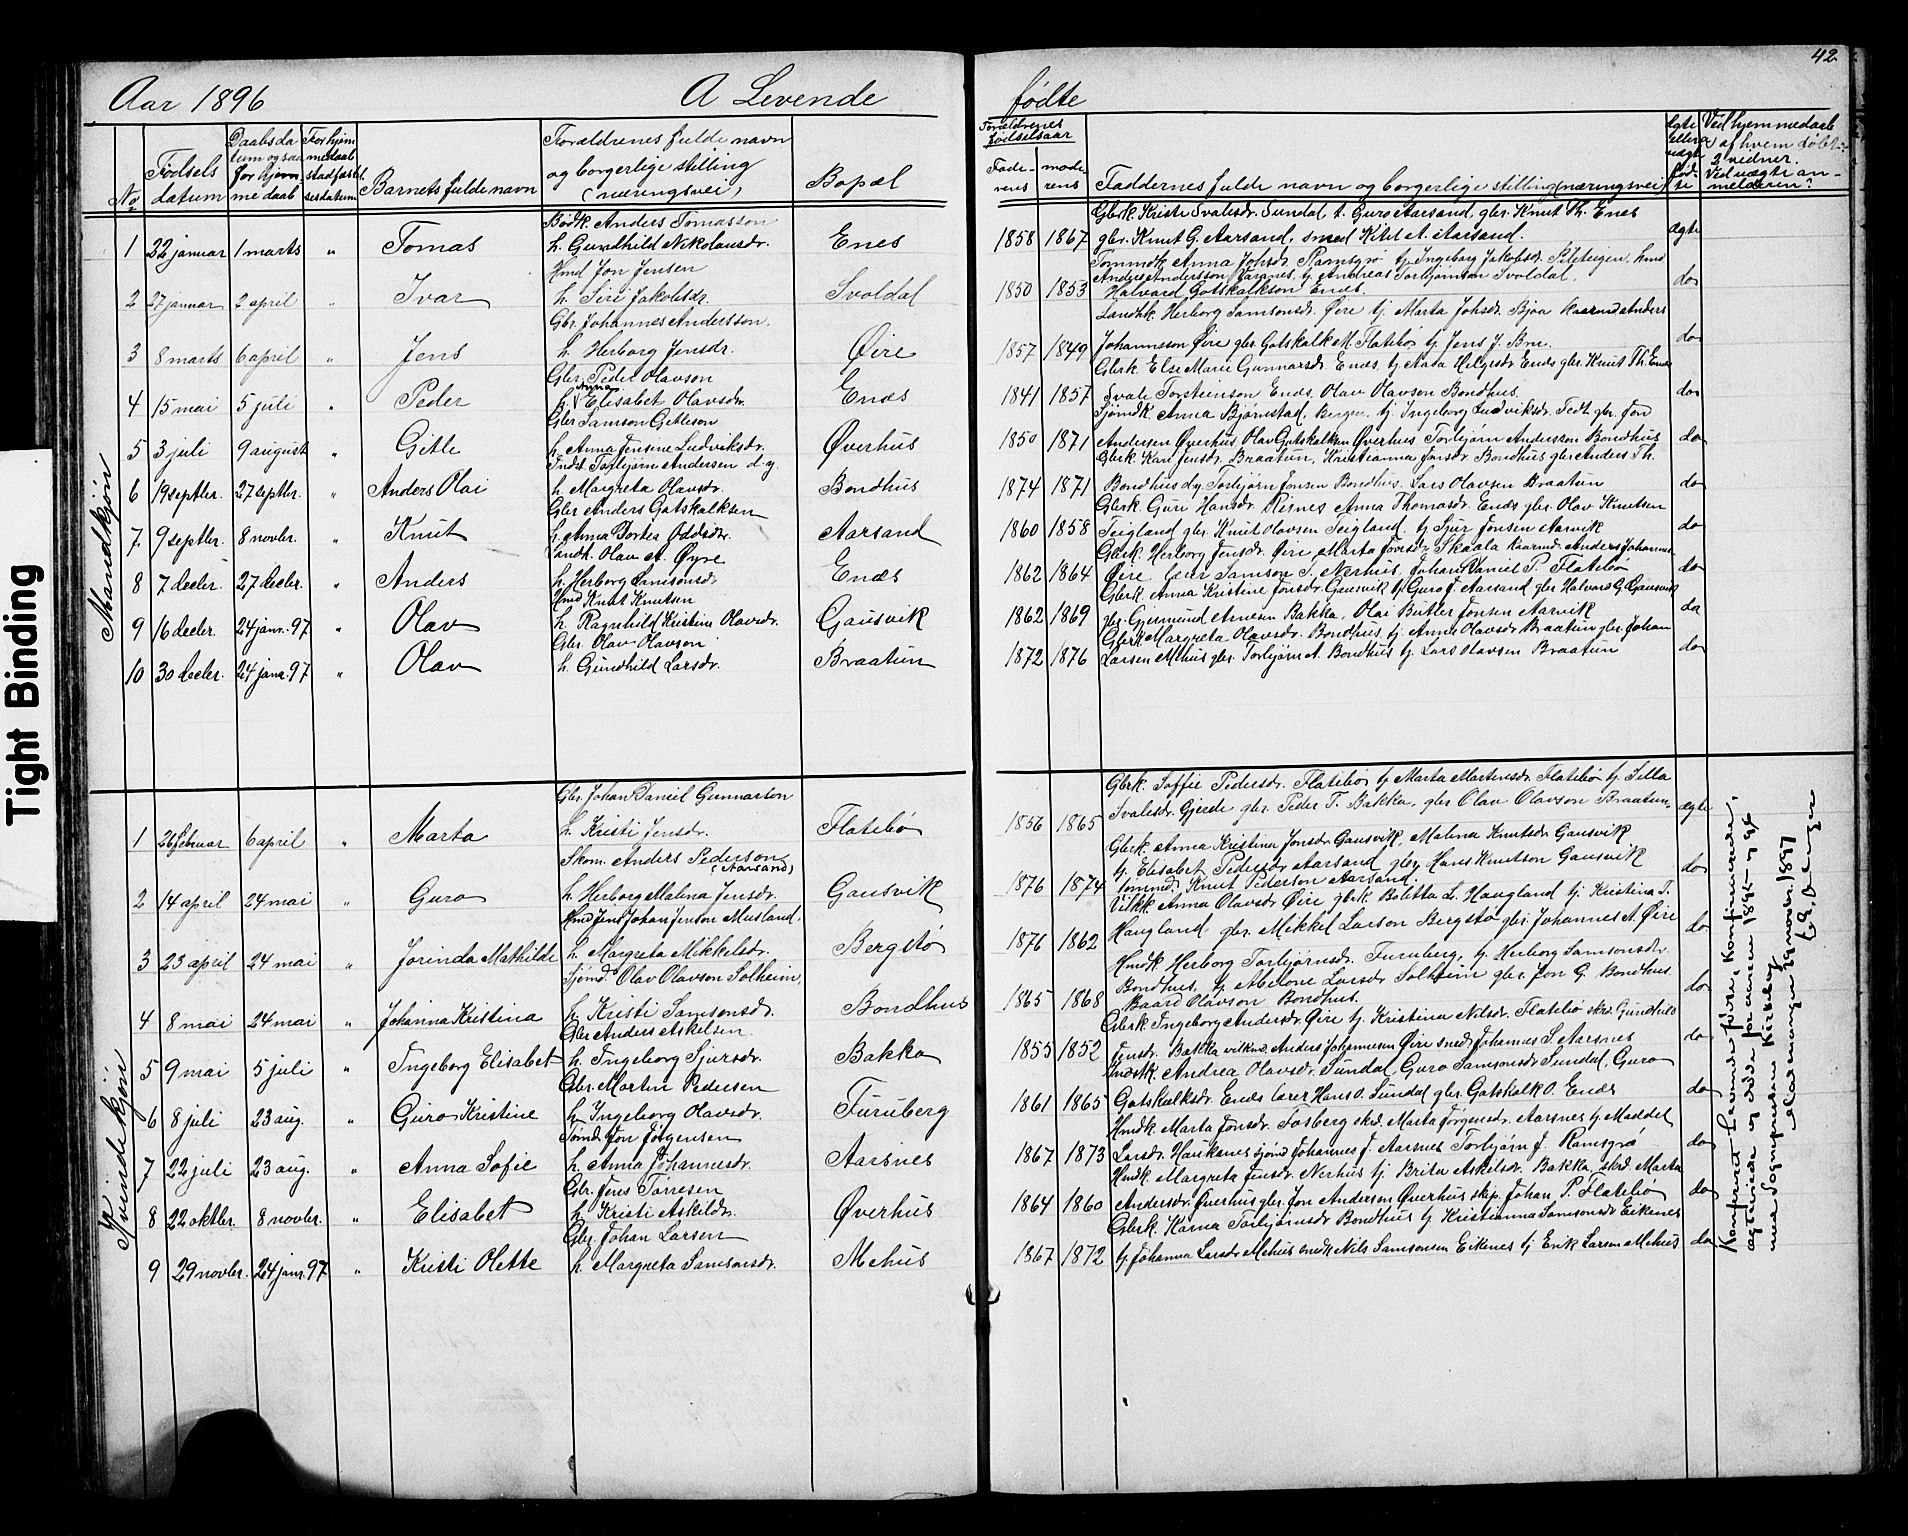 42
Aar 1896
A Levende
fødte
No
Fødsels datum
Daabsdatum og saa for hjemmedaab
For hjemmedaab stadfæstelsesdatum
Barnets fulde navn
Forældrenes fulde navn og borgerlige stilling (næringsvei)
Bopæl
Forældrenes fødselsaar
Faderens
moderens
Faddernes fulde navn og borgerlige stilling (næringsvei)
Ægte eller uægte født
Ved hjemmedaab af hvem døbt:
2 vidner.
Ved uægte anmelderen?
Tight Binding
Mandkjøn
1 22 januar 1 marts " Tomas Bødk. Anders Tomasson h. Gunhild Nikolausdr. Enes 1858 1867
Gbrk. Kristi Svalesdr. Sundal, t. Guro Aarsand, gbr. Knut Th. Enes
gbr. Knut G. Aarsand, smed Kitil A. Aarsand. ægte
2 27 januar 2 april " Ivar Hmd Jon Jensen h. Siri Jakobsdr. Svoldal 1850 1853
Anders Andersson Varanes, tj. Andreas Torbjørnson Svoldal,
Halvard Gotskalkson Enes. do
3 8 marts 6 april " Jens Gbr. Johannes Andersson. h. Herborg Jensdr. Øire 1857 1849
Landhk. Herborg Samsonsdr. Øire tj. Marta Johsdr. Bjoa Kaarmd Anders
Johannsson Øire gbr. Gotskalk M. Flatebø tj. Jens J. Bne. do
4 15 mai 5 juli " Peder Gbr. Peder Olavson h. Anna Elisabet Olavsdr. Enæs 1841 1857
Gbrk. Else Marie Gunnarsdr. Enæs. tj. Aasa Helgesdr Enæs gbr. Knut Th. Enæs
Svale Torsteinson Enæs. Olav Olavson Bondhus. do
5 3 juli 9 august " Gitle Gbr Samson Gitleson h. Anna Jensine Ludviksdr. Øverhus 1850 1871
Sjømdk. Anna Bjørnstad, Bergen. tj. Ingeborg Ludviksdr. Tedt gbr. Jon
Andersen Øverhus. Olav Gotskalksen Øverhus Torbjørn Andersson Bondhus do
6 19 septbr. 27 septbr. " Anders Olai Indst. Torbjørn Andersen d.y. h. Margreta Olavsdr. Bondhus 1874 1871
Gbrk. Kari Jensdr. Braatun, Kristianna Jonsdr. Bondhus gbr. Anders Th.
Bondhus d.y. Torbjørn Jonsen Bondhus. Lars Olavsen Braatun do
7 9 septbr. 8 novbr. " Knut Gbr Anders Gotskalksen h. Anna Dortea Oddsdr. Aarsand 1860 1858
Gbrk. Guri Hansdr. Disnes Anna Thomasdr. Enæs gbr. Olav Knutsen
Teigland gbr. Knut Olavsen Teigland tj. Sjur Jonsen Aarvik do
8 7 decbr. 27 decbr. " Anders Landh. Olav A. Øyre h. Herborg Samsonsdr. Enæs 1862 1864
Gbrk. Herborg Jensdr. Øire, Marta Jonsdr. Skaala kaarmd. Anders Johannes.
Øire. Samson S. Nerhus. Johan Daniel P. Flatebø do
9 16 decbr. 24 janr. 97. " Olav Hmd Knut Knutsen h. Ragnhild Kristine Olavsdr. Gausvik 1862 1869
Gbrk. Anna Kristine Jonsdr. Gausvik tj. Guro J. Aarsand gbr. Halvard G. Gausvik
gbr. Gjermund Arnesen Bakka. Olai Butler Jonsen Aarvik do
10 30 decbr. 24 janr. 97 " Olav Gbr. Olav Olavson h. Gundhild Larsdr. Braatun 1872 1876
Gbrk. Margreta Olavsdr. Bondhus tj. Anna Olavsdr Braatun gbr. Johan
Larsen Mehus gbr. Torbjørn A. Bondhus tj. Lars Olavsen Braatun do
Kvindekjøn
1 26 februar 6 april " Marta Gbr. Johan Daniel Gunnarson h. Kristi Jensdr. Flatebø 1856 1865
Gbrk. Soffie Pedersdr. Flatebø tj. Marta Martinsdr. Flatebø tj. Silla
Svalesdr. Gjerde gbr. Peder T. Bakka, gbr Olav Olavson Braatun. ægte
2 14 april 24 mai " Guro Skom. Anders Pederson (Aarsand) h. Herborg Malena Jensdr. Gausvik 1876 1874
Gbrk. Anna Kristina Jonsdr. Gausvik, Malena Knutsdr. Gausvik
tj. Elisabet Pedersdr Aarsand gbr. Hans Knutson Gausvik
tommd. Knut Pederson Aarsand. do
3 23 april 24 mai " Jorinda Mathilde Hmd Jens Johan Jenson Musland. h. Margreta Mikkelsdr. Bergstø 1876 1862
Vilkk. Anna Olavsdr. Øire gbrk. Boletta L. Haugland tj. Kristina T.
Haugland gbr. Mikkel Larson Bergstø gbr. Johannes A. Øire do
4 8 mai 24 mai " Johanna Kristina Sjømd. Olav Olavson Solheim, h. Kristi Samsonsdr. Bondhus 1865 1868
Hmdk Herborg Torbjørnsdr. Furuberg, tj. Herborg Samsonsdr.
Bondhus, tj. Abelone Larsdr. Solheim gbr. Jon G. Bondhus.
Baard Olavson Bondhus. do
5 9 mai 5 juli " Ingeborg Elisabet Gbr Anders Askelsen h. Ingeborg Sjursdr. Bakka 1855 1852
Gbrk. Ingeborg Andersdr. Øire tj. Kristina Nilsdr. Flatebø skrd. Gundhild
Jensdr. Bakka vilkmd. Anders Johannesen Øire smed Johannes S. Aarsnes do
6 8 juli 23 aug. " Guro Kristine Gbr. Martin Pedersen h. Ingeborg Olavsdr. Furuberg 1861 1865
Indstk. Andrea Olavsdr. Sundal, Guro Samsonsdr Sundal, Guro
Gotskalksdr. Enæs lærer Hans O. Sundal gbr. Gotskalk O. Enæs do
7 22 juli 23 aug. " Anna Sofie Tømd. Jon Jørgensen h. Anna Johannesdr. Aarsnes 1867 1873
Hmdk. Marta Jonsdr. Fosberg skrd. Marta Jørgensdr. Aarsnes tj. Maddel
Larsdr. Haukenes sjømd Johannes J. Aarsnes Torbjørn J. Ramsgrø do
8 22 oktbr. 8 novbr. " Elisabet Gbr. Jens Torresen h. Kristi Askildr. Øverhus 1864 1860
Hmdk. Margreta Jensdr. Nerhus tj. Brita Askelsdr. Bakka, skrd. Marta
Andersdr. Øverhus gbr. Jon Andersen Øverhus skip. Johan P. Flatebø do
9 29 novbr. 24 janr. 97. " Kristi Olette Gbr. Johan Larsen h. Margreta Samsonsdr. Mehus 1867 1872
Gbrk. Karna Torbjørnsdr Bondhus tj Kristianna Samsonsdr Eikenes
tj. Johanna Larsdr Mehus smdk Nils Samsonsen Eikenes tj Erik Larsen Mehus do
Konfereret Levende fødte, Konfirmerede,
ægteviede og døde for aarene 1895 og 96
med Sognepræstens Kirkebog
29 novbr. 1897